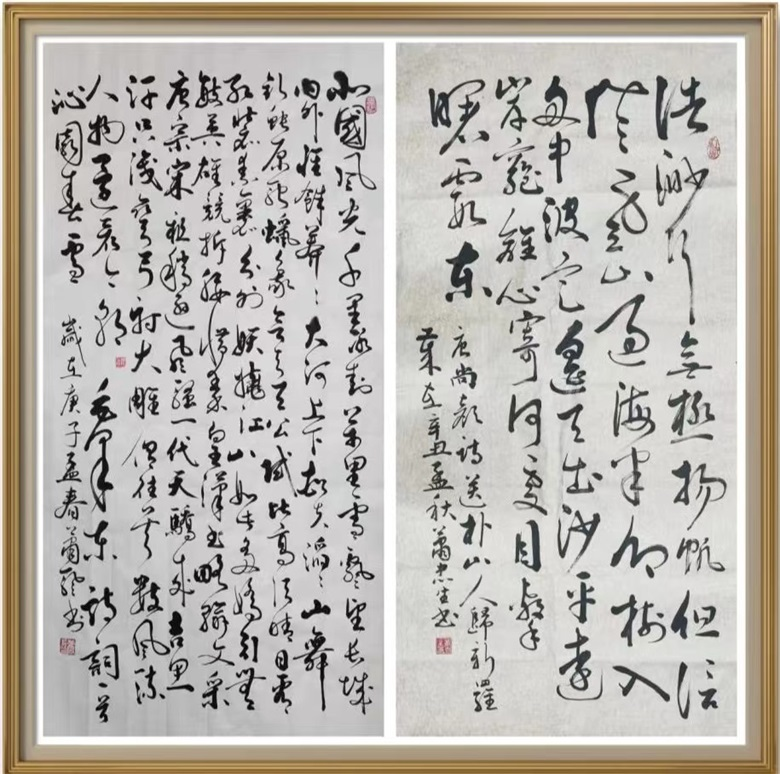 浩渺行無極揚帆但信
風云山過海半鄉樹入
舟中波定遙天出沙平遠
岸窮離心寄何處目擊
曙霞東
唐尚顏詩送朴山人歸新羅
歲在辛丑孟秋蕭忠生书
北國風光千里冰封萬里雪飄望長城
内外惟餘莽〻大河上下頓失滔〻山舞
銀蛇原馳蠟象欲與天公試比高須晴日看
紅裝素裹分外妖嬈江山如此多嬌引無
數英雄競折腰惜秦皇漢武略輸文采
唐宗宋祖稍遜風騷一代天驕成吉思
汗只識彎弓射大雕俱往矣數風流
人物還看今朝 毛澤東詩詞一首
沁園春雪 歲在庚子孟春蕭书